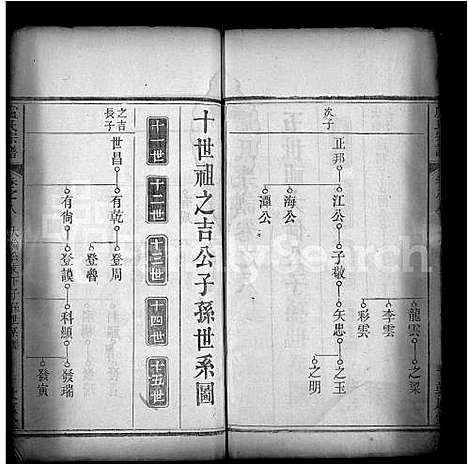 次子
正邦 江公 子敬 矢忠 之玉 之明
海公
潭公
龍雲 之梁
李雲
彩雲
十世祖之吉公子孫世系圖
十一世 十二世 十三世 十四世 十五世
之吉長子
世昌 有乾 登周
登魯
有尙 登謨 科顯 發瑞
發寅
FamilySearch